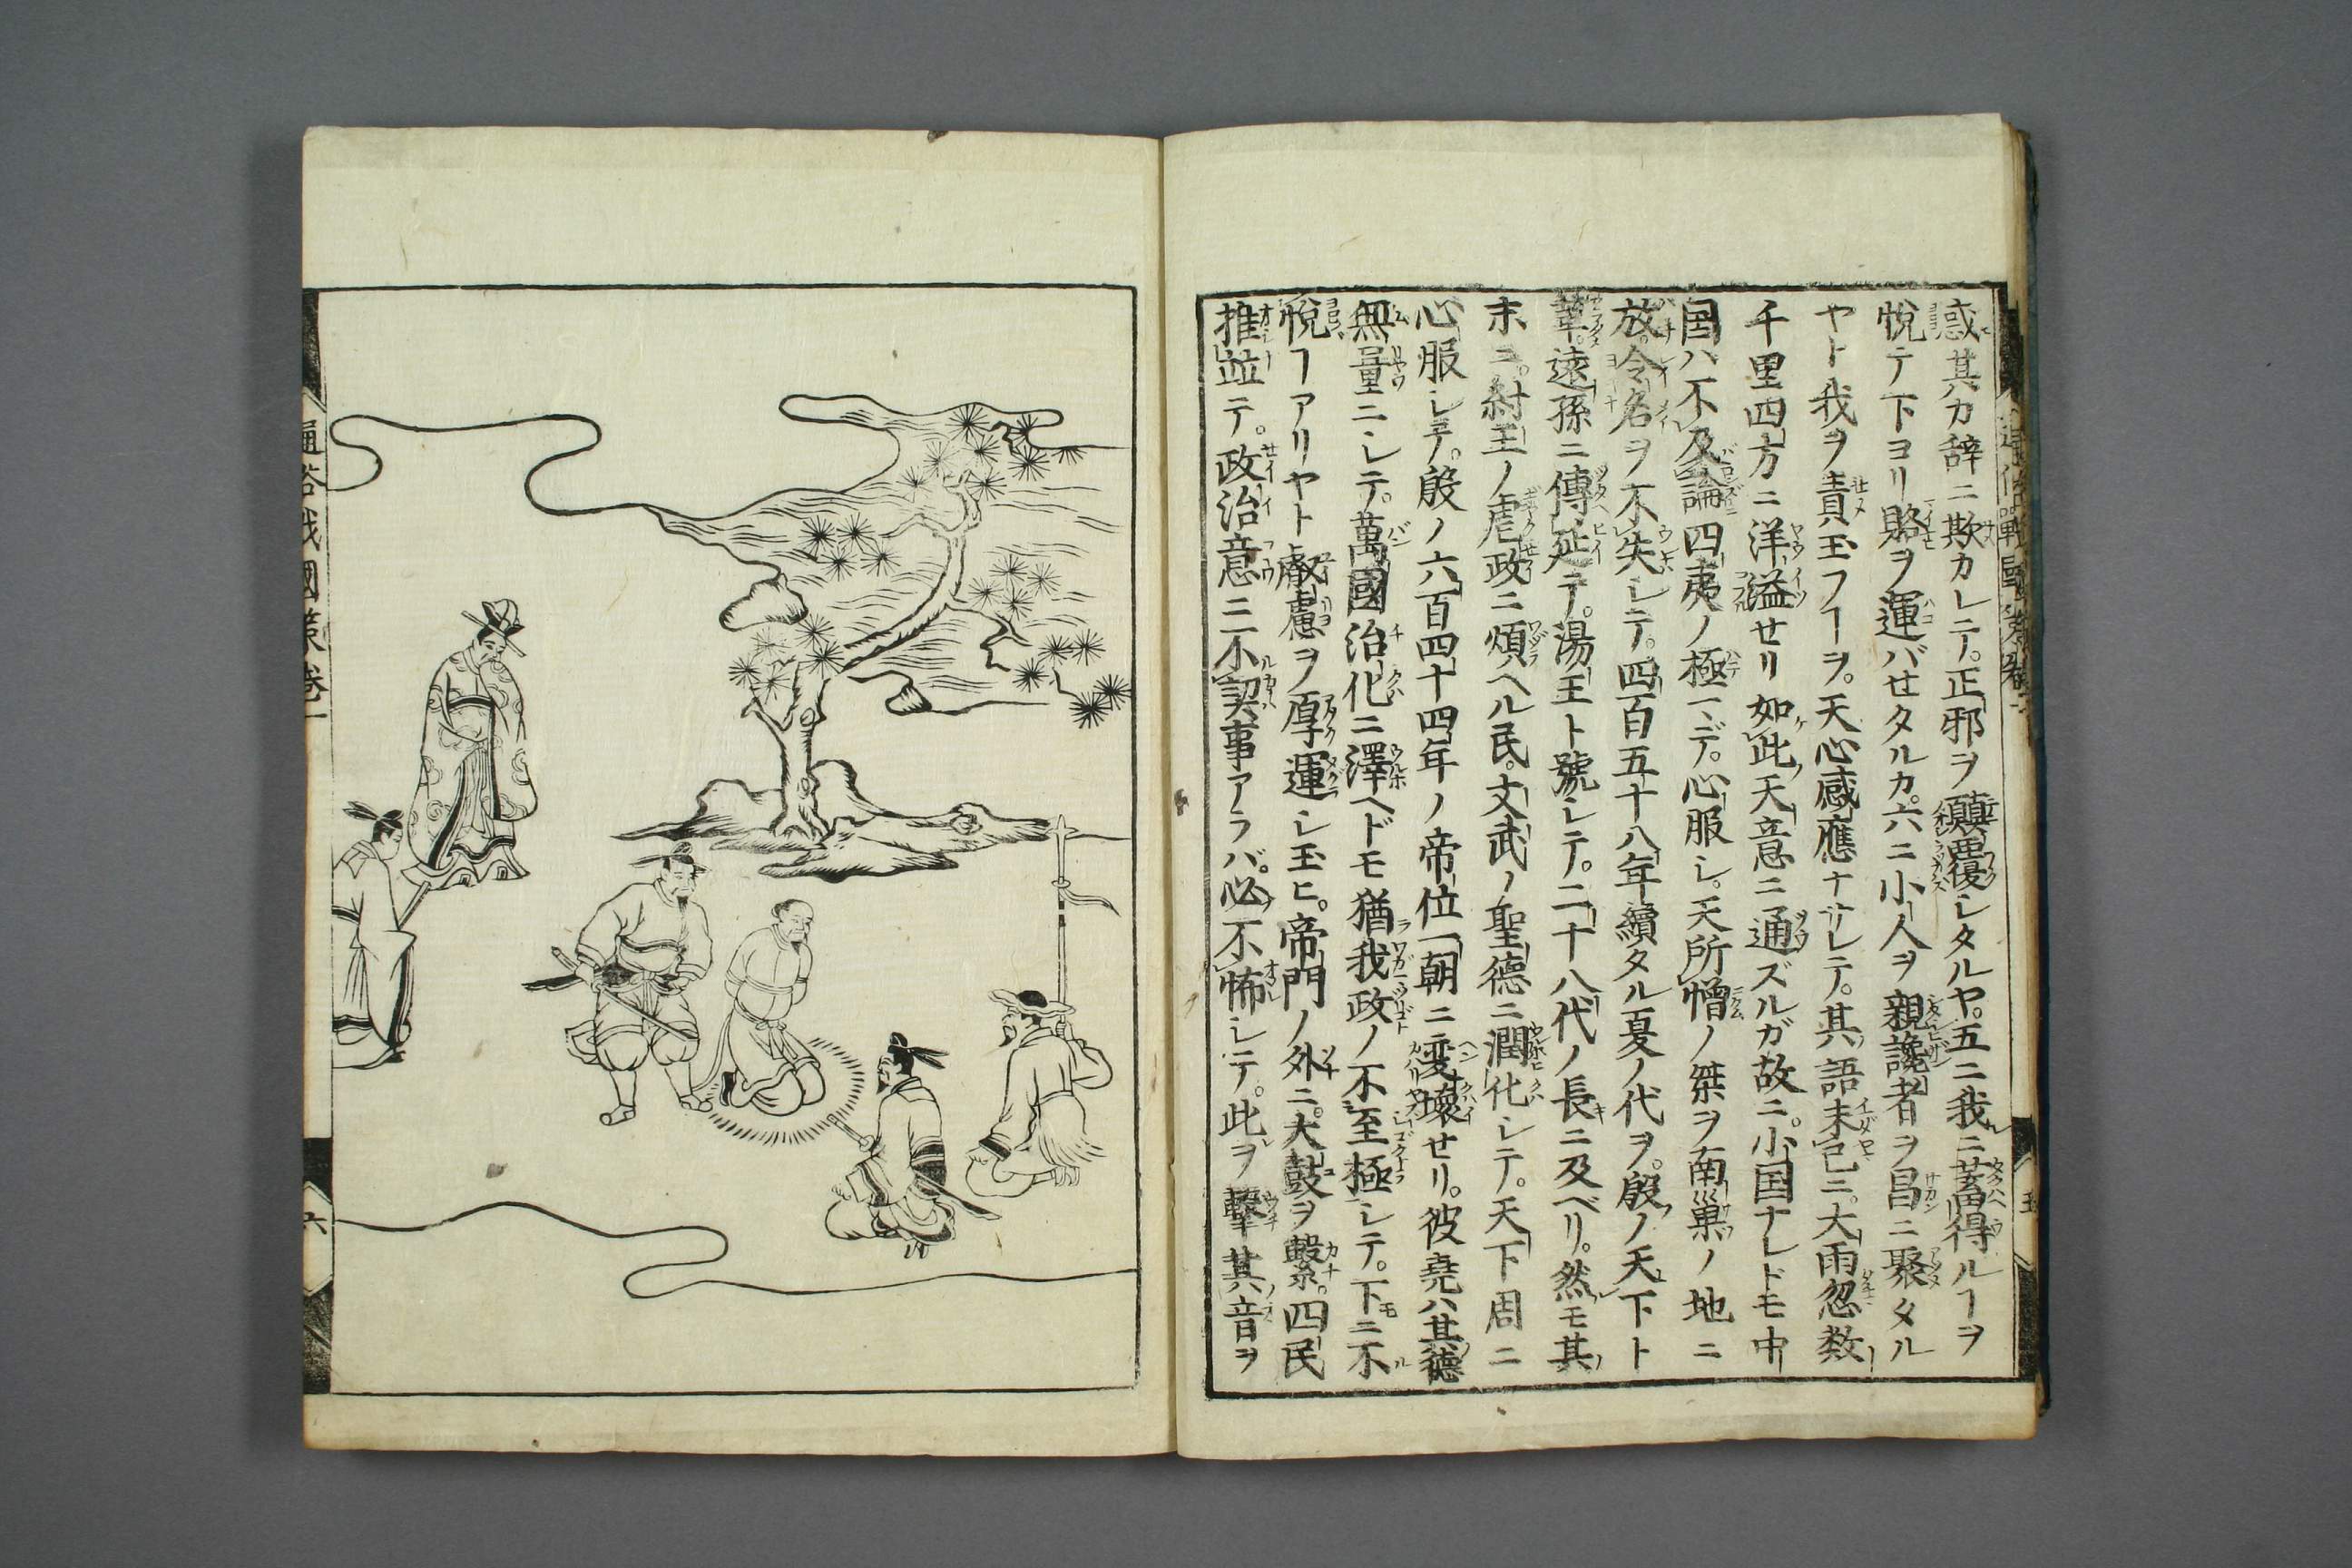 感其カ辞ニ欺カレテ。正邪ヲ顛覆シタルヤ。五ニ我ニ蓄得ルヿヲ
悦テ下ヨリ賂ヲ運バセタルカ。六ニ小人ヲ親讒者ヲ昌ニ聚タル
ヤト我ヲ責玉フヿヲ。天心感應ナサレテ。其語未已ニ。大雨忽数
千里四方ニ洋溢セリ如此天意ニ通ズルガ故ニ。小国ナレドモ中
国ハ不及論四夷ノ極マデ。心服シ。天所憎ノ桀ヲ南巣ノ地ニ
放。令名ヲ不失シテ。四百五十八年續タル夏ノ代ヲ。殷ノ天下ト
革。遠孫ニ傳延テ。湯王ト號シテ。二十八代ノ長ニ及ベリ。然モ其
末ニ。紂王ノ虐政ニ煩ヘル民。文武ノ聖德ニ潤化シテ。天下周ニ
心服シテ。殷ノ六百四十四年ノ帝位一朝ニ変壞セリ。彼堯ハ其德
無量ニシテ。萬國治化ニ澤ヘドモ猶我政ノ不至極シテ。下ニ不
悦ヿアリヤト叡慮ヲ厚運シ玉ヒ。帝門ノ外ニ。大鼓ヲ繋。四民
推竝テ。政治意ニ不契事アラバ。必不怖シテ。此ヲ擊其音ヲ
通俗戰國策卷一
六